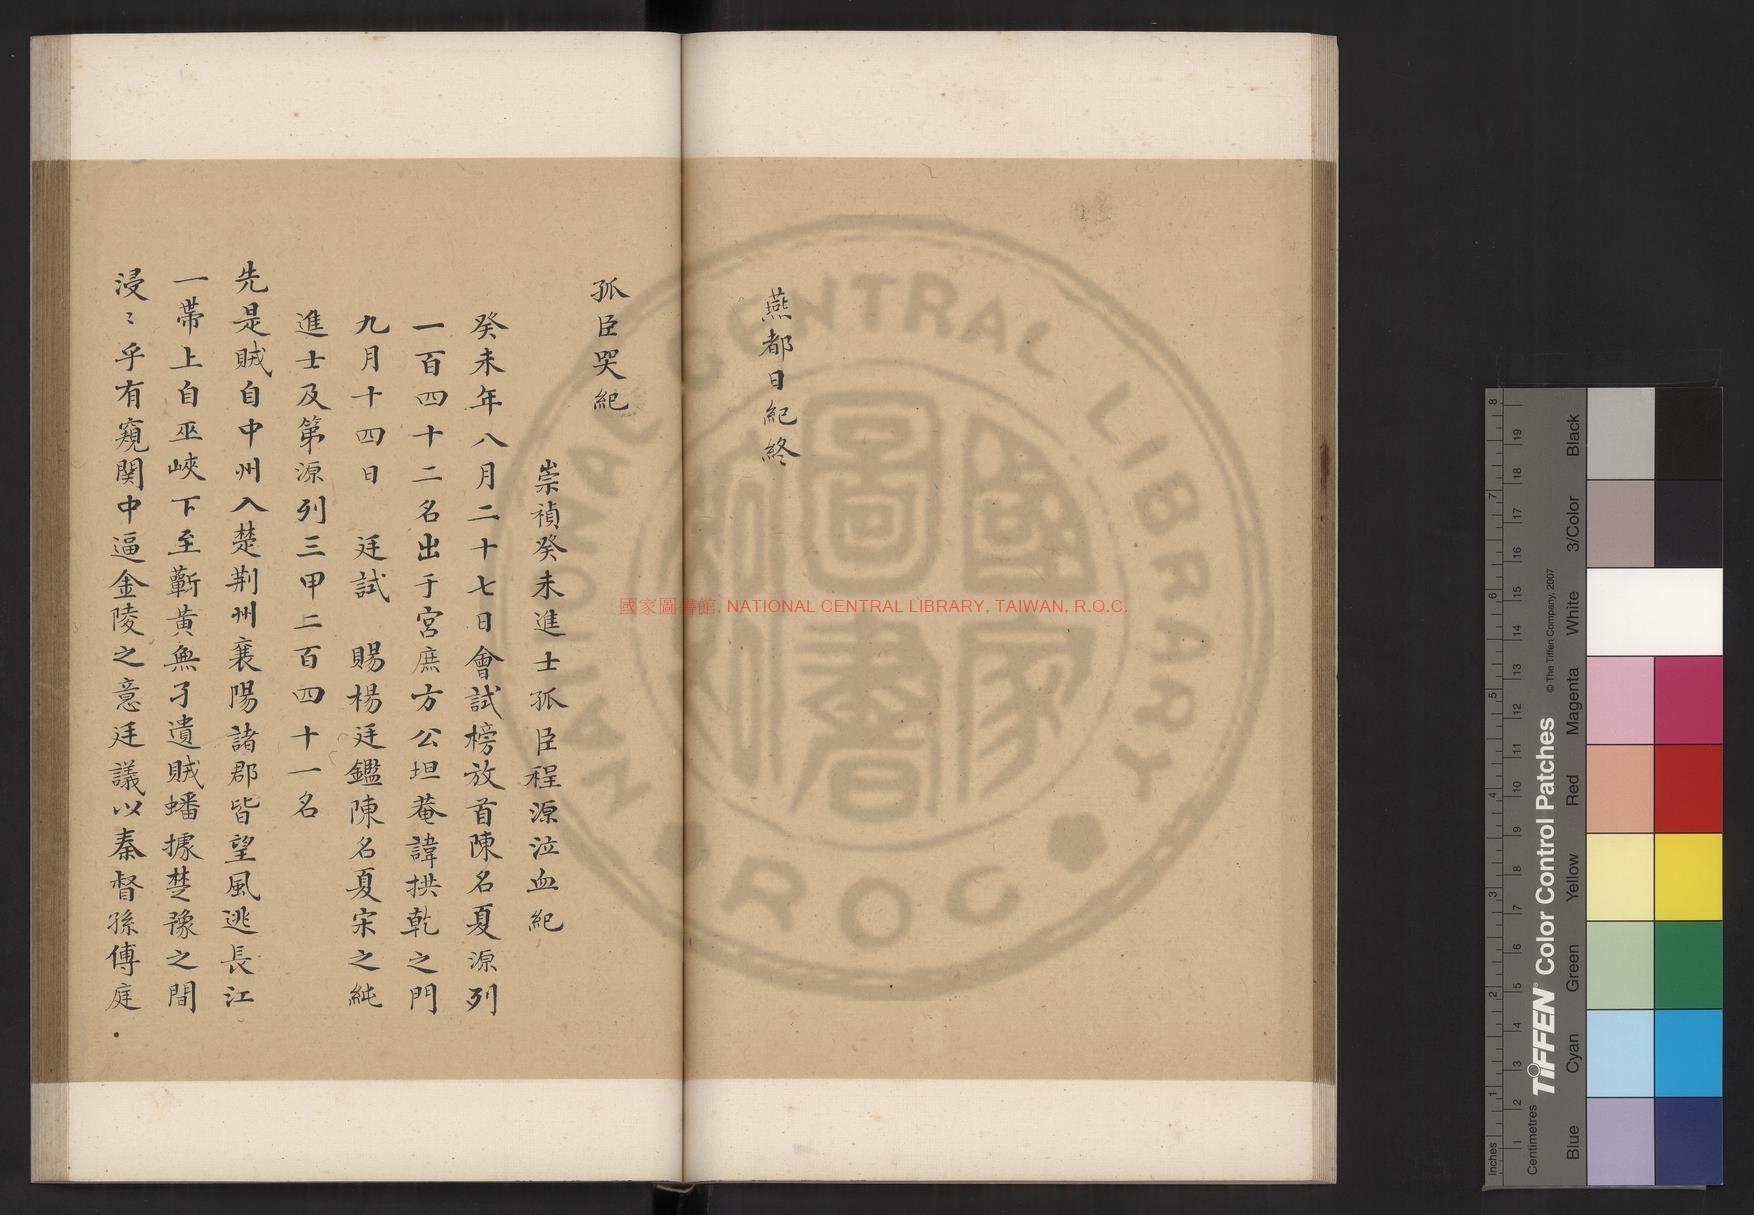 燕都日紀終
孤臣哭紀
崇禎癸未進士孤臣程源泣血紀
癸未年八月二十七日會試榜放首陳名夏源列
一百四十二名出于宮庶方公坦菴諱拱乾之門
九月十四日 廷試 賜楊廷鑑陳名夏宋之純
進士及第源列三甲二百四十一名
先是賊自中州入楚荆州襄陽諸郡皆望風逃長江
一帯上自巫峽下至蘄黄無孑遺賊蟠據楚豫之間
浸〻乎有窺関中逼金陵之意廷議以秦督孫傅庭
國家圖書館, NATIONAL CENTRAL LIBRARY, TAIWAN, R.O.C.
NATIONAL CENTRAL LIBRARY
R.O.C
國家圖書
TIFFEN® Color Control Patches
© The Tiffen Company, 2007
Inches
1
2
3
4
5
6
7
8
Centimetres
1
2
3
4
5
6
7
8
9
10
11
12
13
14
15
16
17
18
19
Blue
Cyan
Green
Yellow
Red
Magenta
White
3/Color
Black